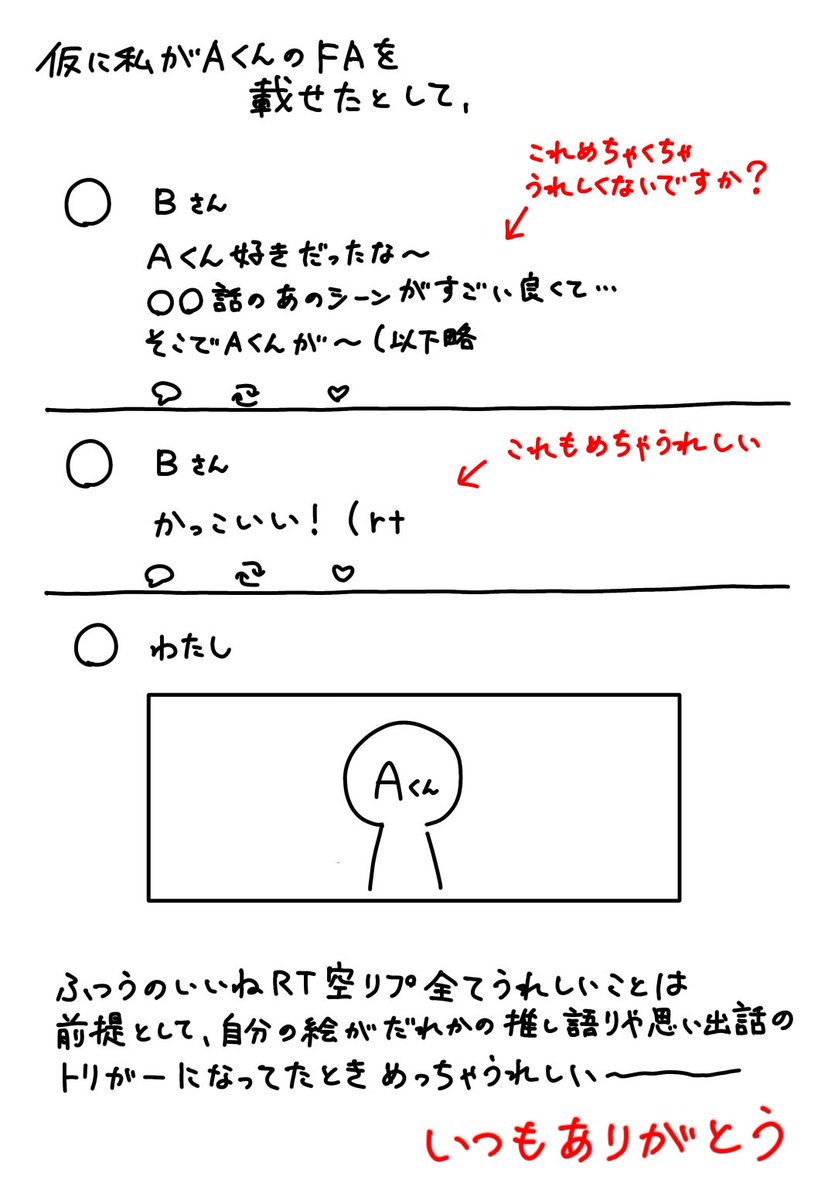 仮に私がAくんのFAを
載せたとして、
これめちゃくちゃ
うれしくないですか?
Bさん
Aくん好きだったな〜
○○話のあのシーンがすごい良くて…
そこでAくんが〜(以下略
これもめちゃうれしい
Bさん
かっこいい!(rt
わたし
Aくん
ふつうのいいねRT空リプ全てうれしいことは
前提として、自分の絵がだれかの推し語りや思い出話の
トリガーになってたときめっちゃうれしい〜
いつもありがとう